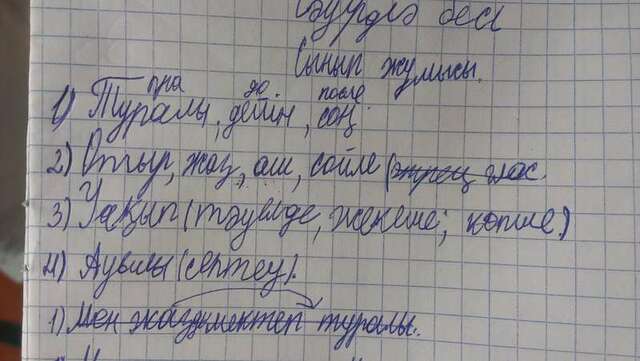 Сәуірдің бесі
Сынып жұмысы.
про до после
1) Туралы, дейін, соң.
2) Отыр, жаз, аш, сөйле (глас.
3) Уақыт (тәуелде, жекеше, көпше)
4) Ауылы (септеу).
1) Мен жаздым мектеп туралы.